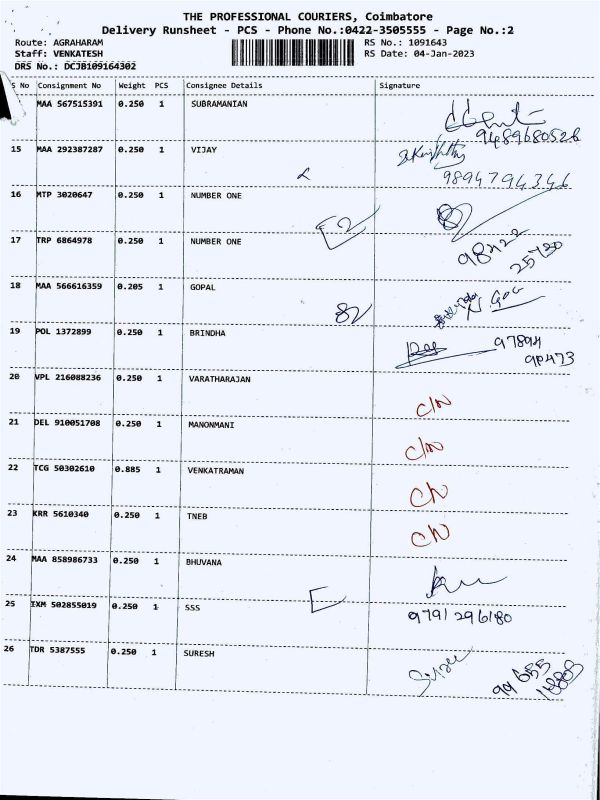 THE PROFESSIONAL COURIERS, Coimbatore
Delivery Runsheet - PCS - Phone No.:0422-3505555 - Page No.:2
Route: AGRAHARAM RS No.: 1091643
Staff: VENKATESH RS Date: 04-Jan-2023
DRS No.: DCJB109164302
S No Consignment No Weight PCS Consignee Details Signature
MAA 567515391 0.250 1 SUBRAMANIAN
9489680526
15 MAA 292387287 0.250 1 VIJAY
9894794346
16 MTP 3020647 0.250 1 NUMBER ONE
17 TRP 6864978 0.250 1 NUMBER ONE
98422
25730
18 MAA 566616359 0.205 1 GOPAL
19 POL 1372899 0.250 1 BRINDHA
97894
90473
20 VPL 216088236 0.250 1 VARATHARAJAN
C/N
21 DEL 910051708 0.250 1 MANONMANI
C/N
22 TCG 50302610 0.885 1 VENKATRAMAN
C/N
23 KRR 5610340 0.250 1 TNEB
C/N
24 MAA 858986733 0.250 1 BHUVANA
25 IXM 502855019 0.250 1 SSS
9791296180
26 TDR 5387555 0.250 1 SURESH
99655